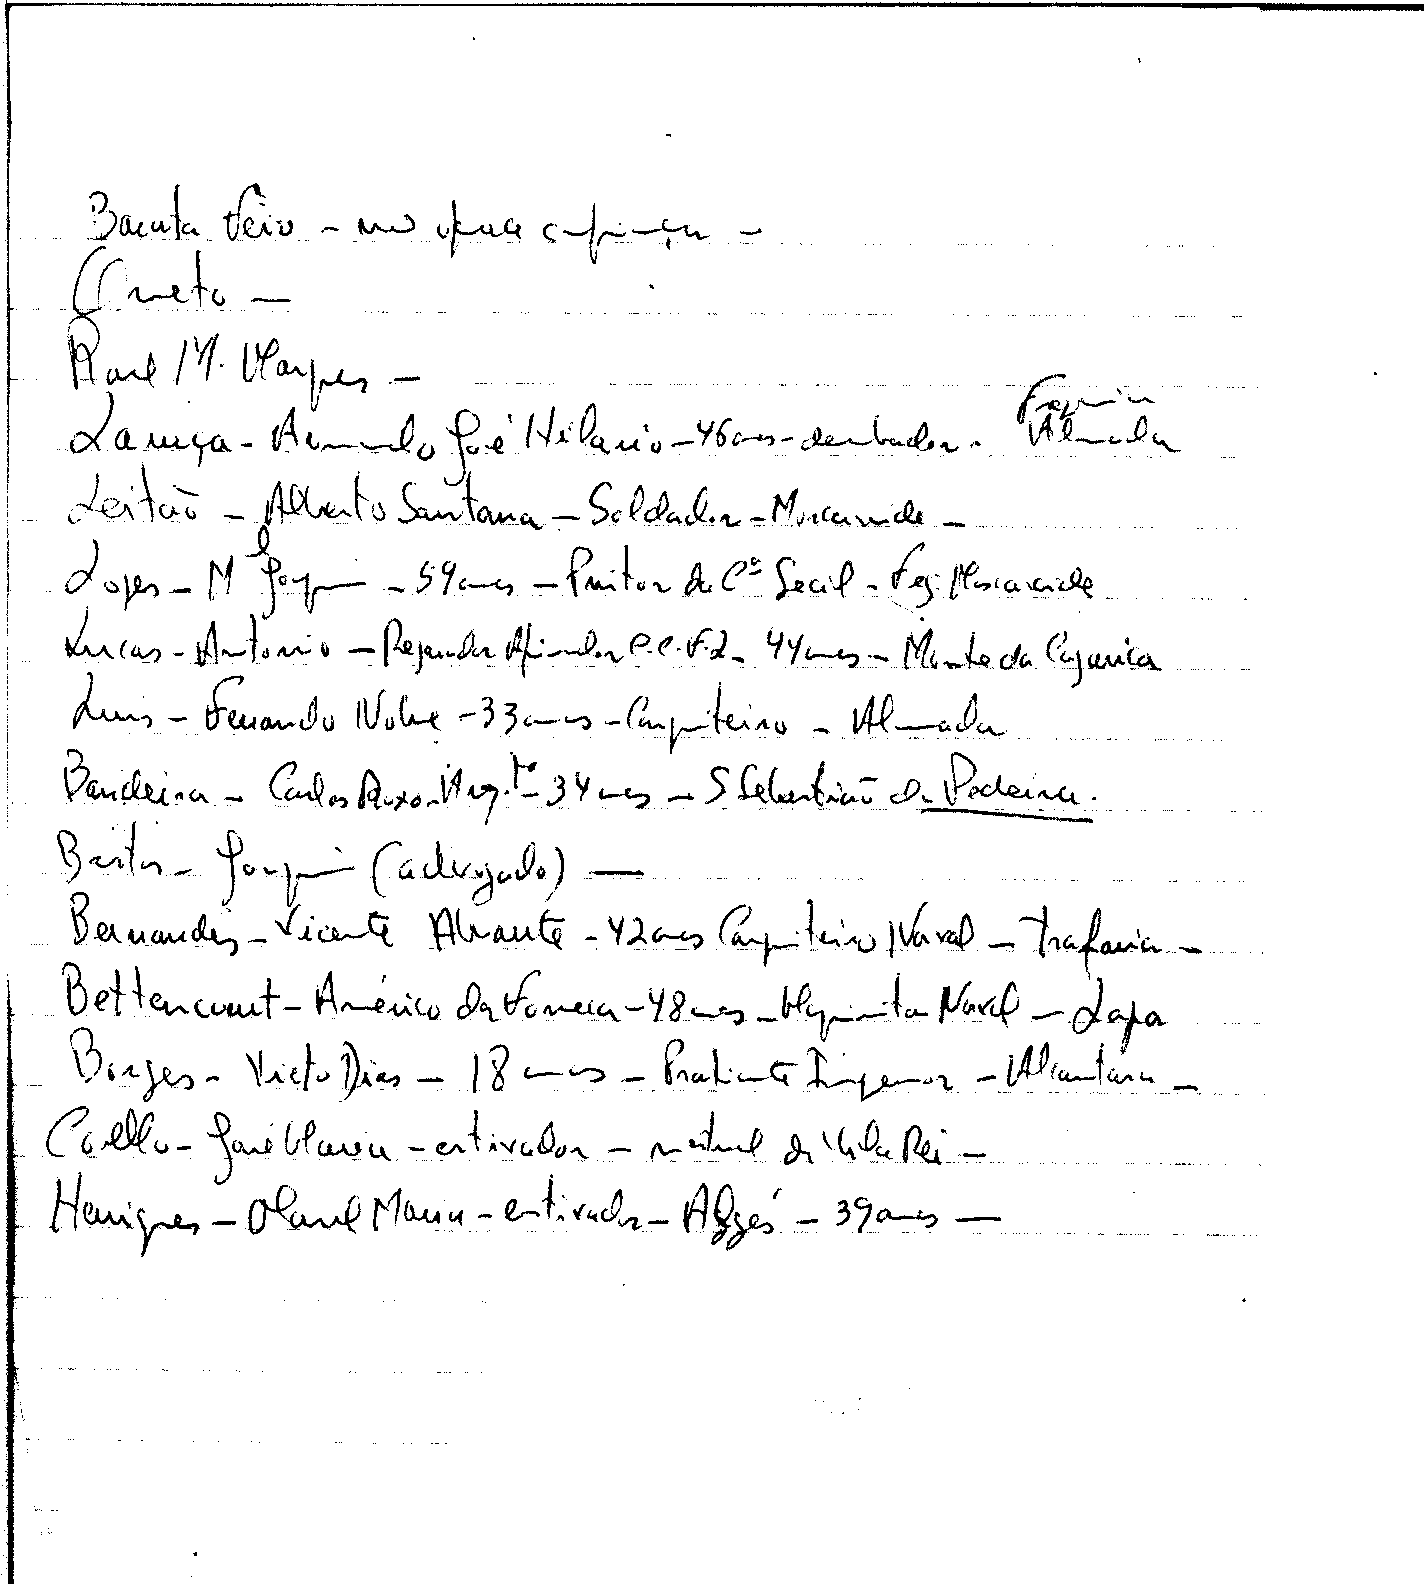 Barata Feio - não
Cmeto -
Raul M. Marques -
Freguesia
Laruça - Armando José Hilario - 46 anos - - Almada
Leitão - Alberto Santana - Soldador - Moscavide -
Lopes - Mel Joaquim - 59 anos - Pintor da Cª Secil - Freg. Moscavide
Lucas - Antonio - 44 anos - Monte da Caparica
Luis - Fernando Nobre - 33 anos - Carpinteiro - Almada
Bandeira - Carlos - 34 anos - S Sebastião da Pedreira.
Bastos - Joaquim (advogado) -
Bernandes - Vicente Abrante - 42 anos Carpinteiro Naval - Trafaria -
Bettencourt - Américo da Fonseca - 48 anos - Maquinista Naval - Lapa
Borges - Victo Dias - 18 anos - - Alcantara -
Coelho - José Maria - estivador - natural de Vila Rei -
Henriques - Manuel Maria - estivador - Algés - 39 anos -